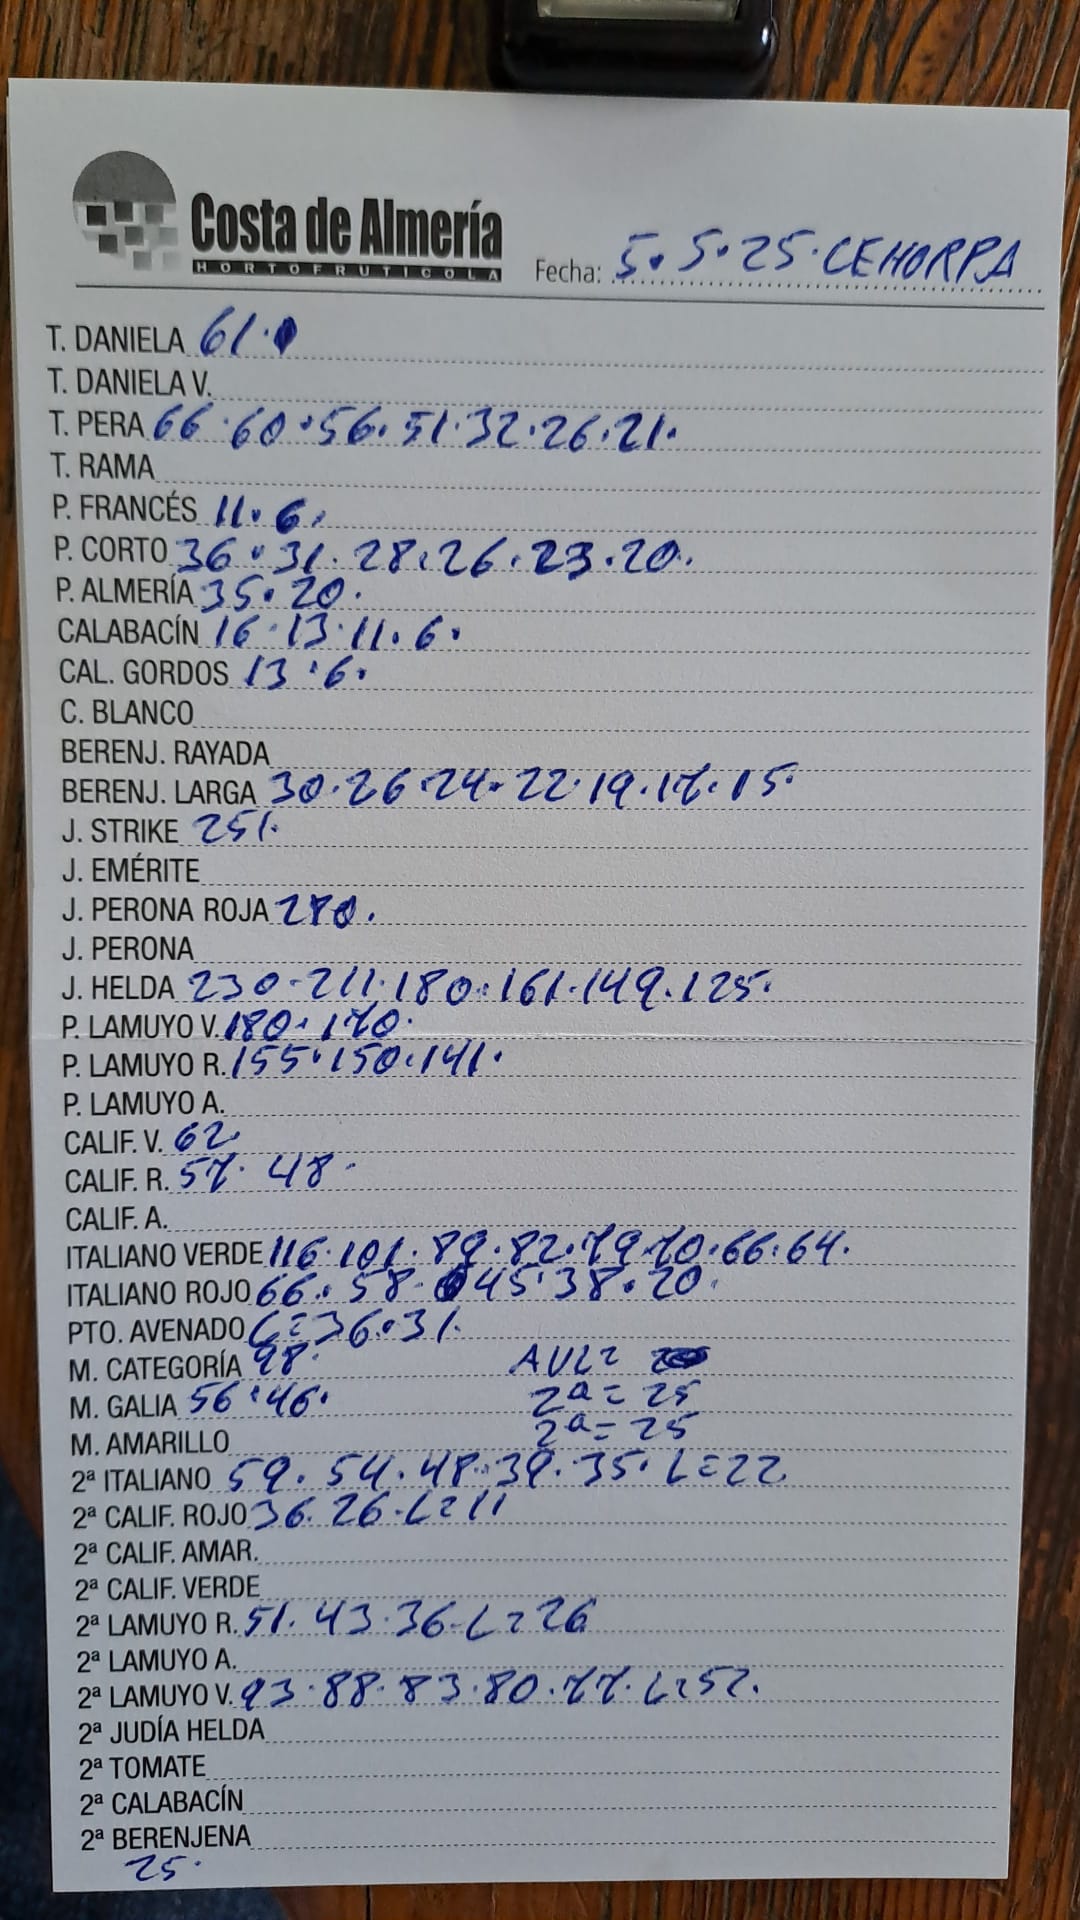 Costa de Almería
HORTOFRUTICOLA
Fecha: 5.5.25.CEHORPA
T. DANIELA 61.
T. DANIELA V.
T. PERA 66.60.56.51.32.26.21.
T. RAMA
P. FRANCÉS 11.6.
P. CORTO 36.31.28.26.23.20.
P. ALMERÍA 35.20.
CALABACÍN 16.13.11.6.
CAL. GORDOS 13.6.
C. BLANCO
BERENJ. RAYADA
BERENJ. LARGA 30.26.24.22.19.17.15.
J. STRIKE 251.
J. EMÉRITE
J. PERONA ROJA 280.
J. PERONA
J. HELDA 230.211.180.161.149.125.
P. LAMUYO V. 180.170.
P. LAMUYO R. 155.150.141.
P. LAMUYO A.
CALIF. V. 62.
CALIF. R. 57.48.
CALIF. A.
ITALIANO VERDE 116.101.89.82.79.70.66.64.
ITALIANO ROJO 66.58.45.38.20.
PTO. AVENADO L=36.31.
M. CATEGORÍA 98. AVL=
M. GALIA 56.46. 2ª=25
M. AMARILLO 2ª=25
2ª ITALIANO 59.54.48.39.35.L=22.
2ª CALIF. ROJO 36.26.L=11
2ª CALIF. AMAR.
2ª CALIF. VERDE
2ª LAMUYO R. 51.43.36.L=26
2ª LAMUYO A.
2ª LAMUYO V. 93.88.83.80.77.L=52.
2ª JUDÍA HELDA
2ª TOMATE
2ª CALABACÍN
2ª BERENJENA
25.